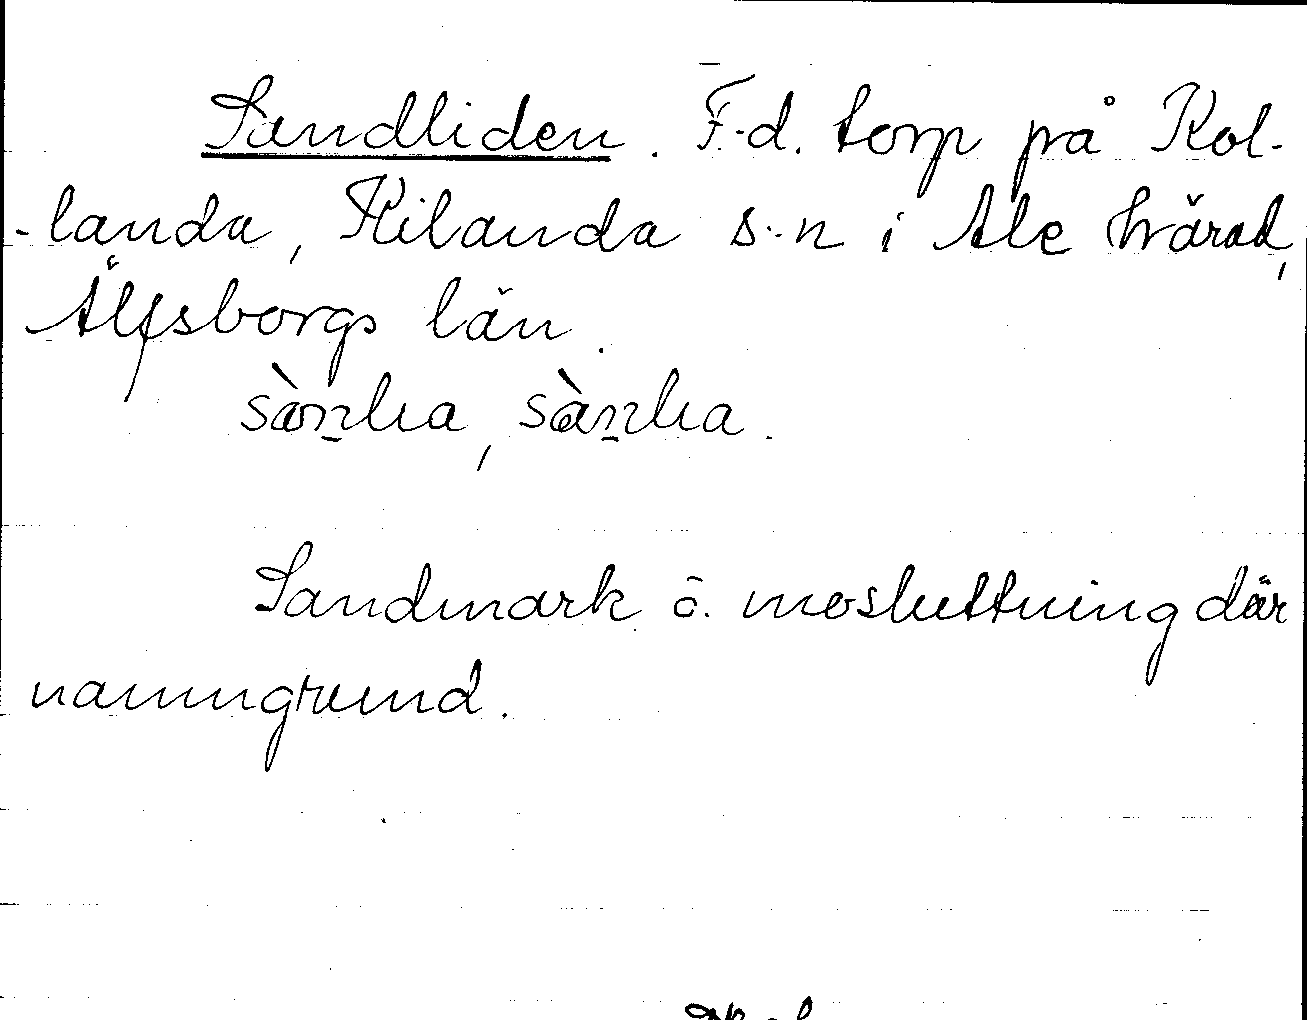 Sandliden. F.d. torp på Kol-
-landa, Kilanda s.n i Ale härad,
Älfsborgs län.
sàn̲lia, sàn̲lia.
Sandmark ö. mosluttning där
namngrund.